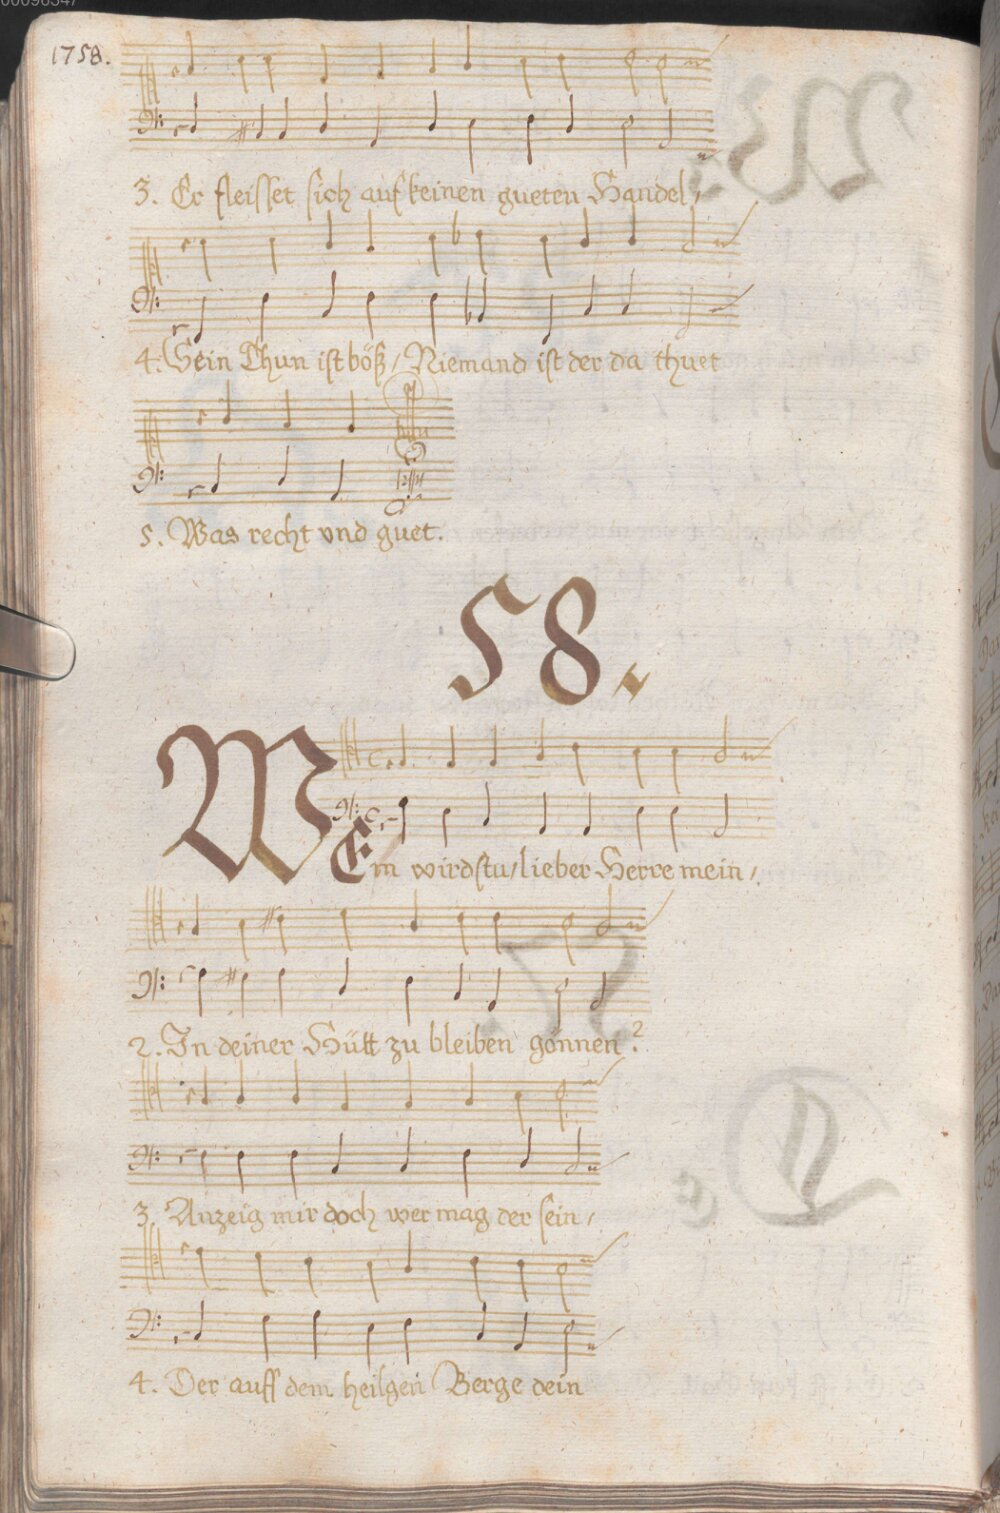 1758.
3. Er fleisset sich auf keinen gueten Handel,
4. Sein Thun ist böß / Niemand ist der da thuet
5. Was recht vnd guet.
58.
WEm wirdstu / lieber Herre mein /
2. In deiner Hütt zu bleiben gönnen?
3. Anzeig mir doch wer mag der sein /
4. Der auff dem heilgen Berge dein